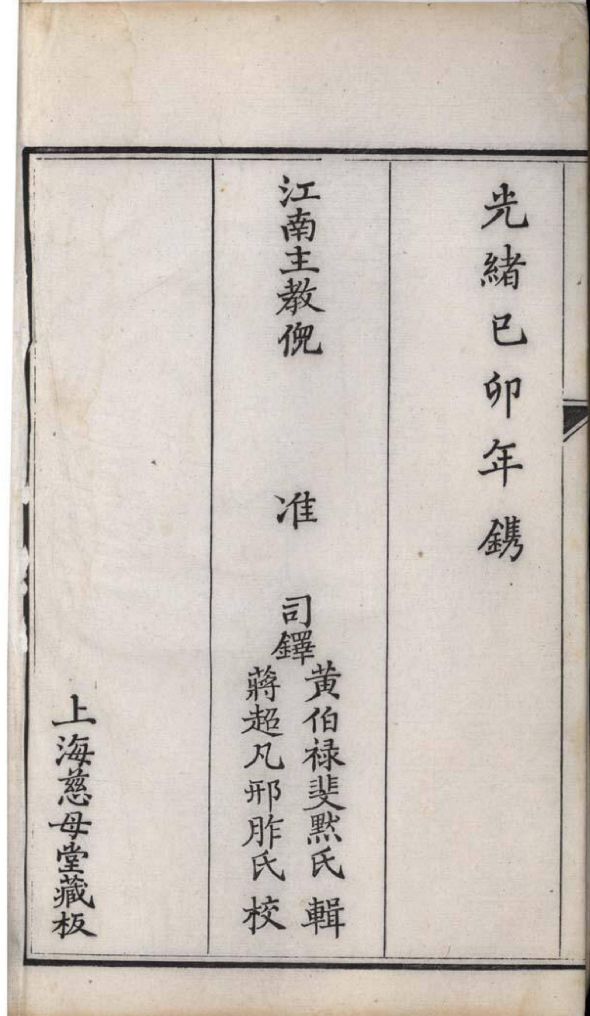 光緒己卯年鐫
江南主教倪 准
司鐸
黄伯禄斐默氏 輯
蔣超凡邢胙氏 校
上海慈母堂藏板